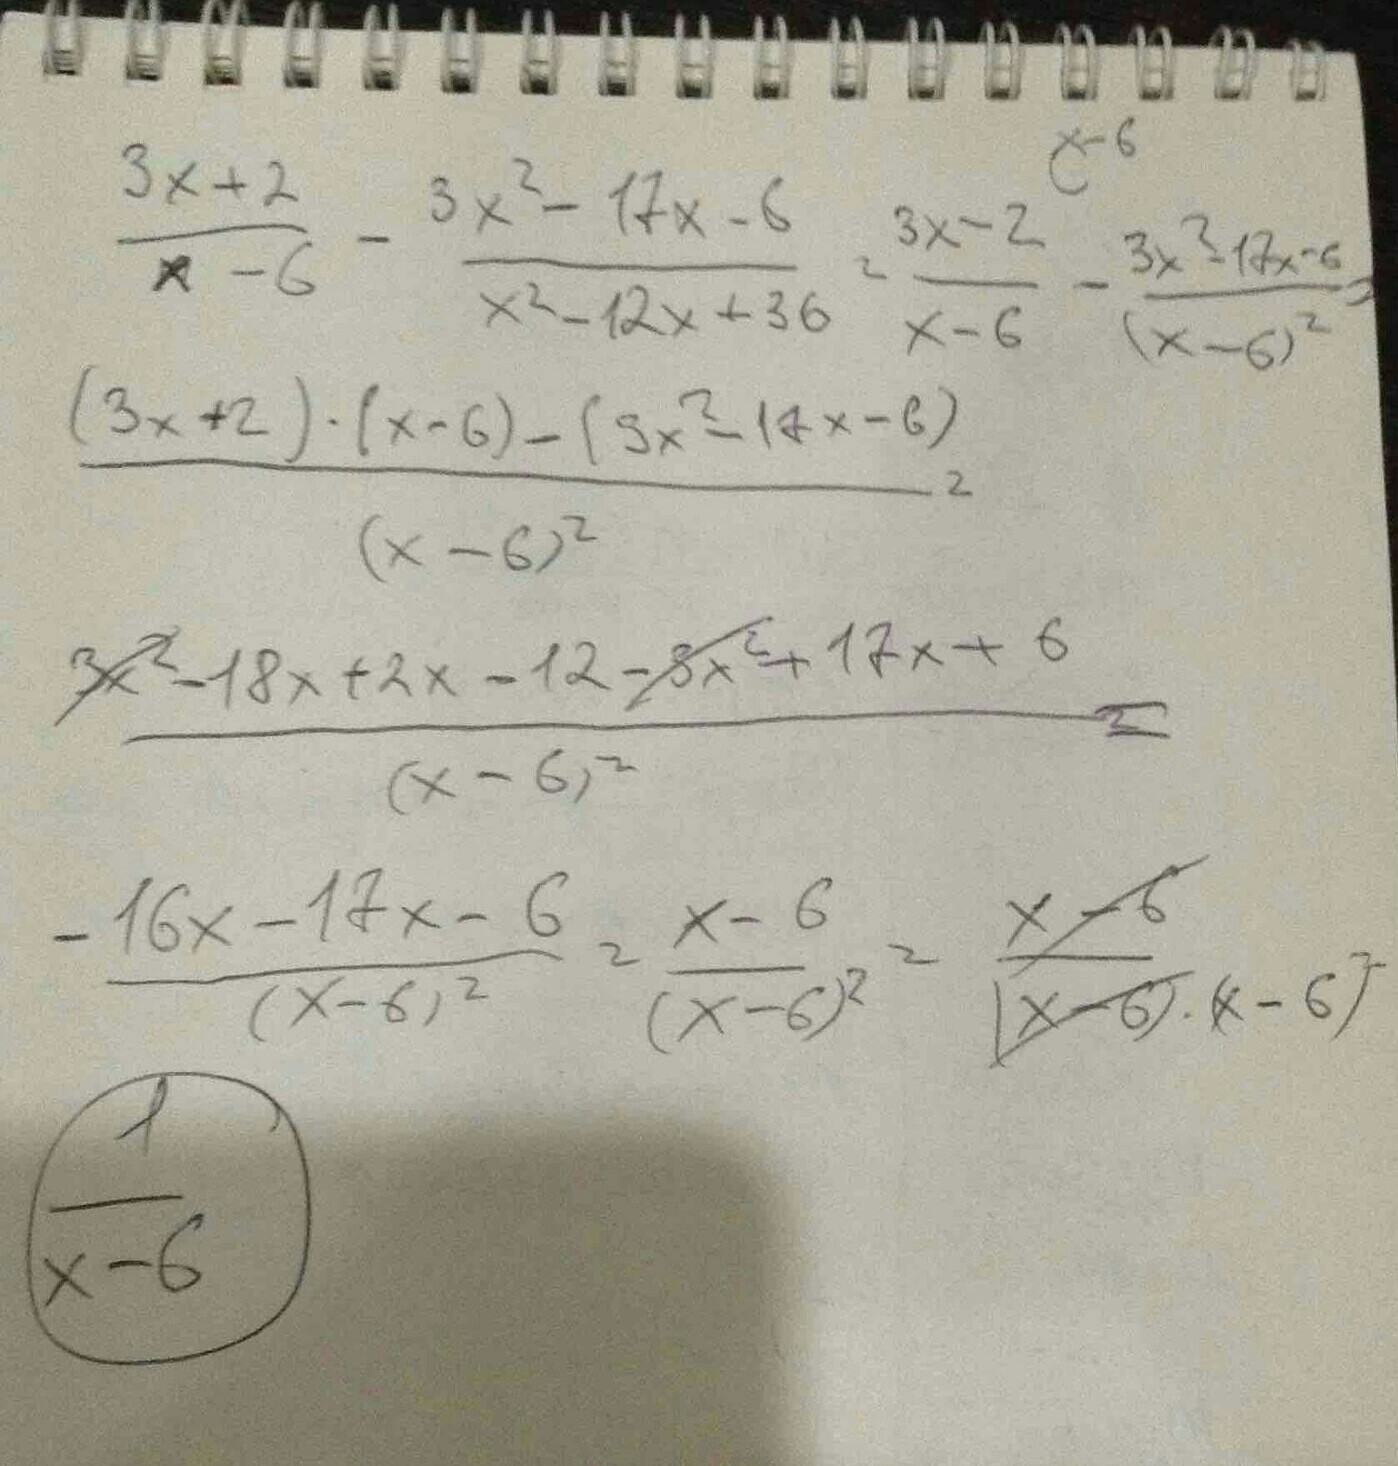 x-6
(3x+2)/(x-6) - (3x²-17x-6)/(x²-12x+36) = (3x-2)/(x-6) - (3x²-17x-6)/(x-6)² =
((3x+2)·(x-6)-(3x²-17x-6))/(x-6)² =
(3x²-18x+2x-12-3x²+17x+6)/(x-6)² =
(-16x-17x-6)/(x-6)² = (x-6)/(x-6)² = (x-6)/((x-6)·(x-6)) =
1/(x-6)